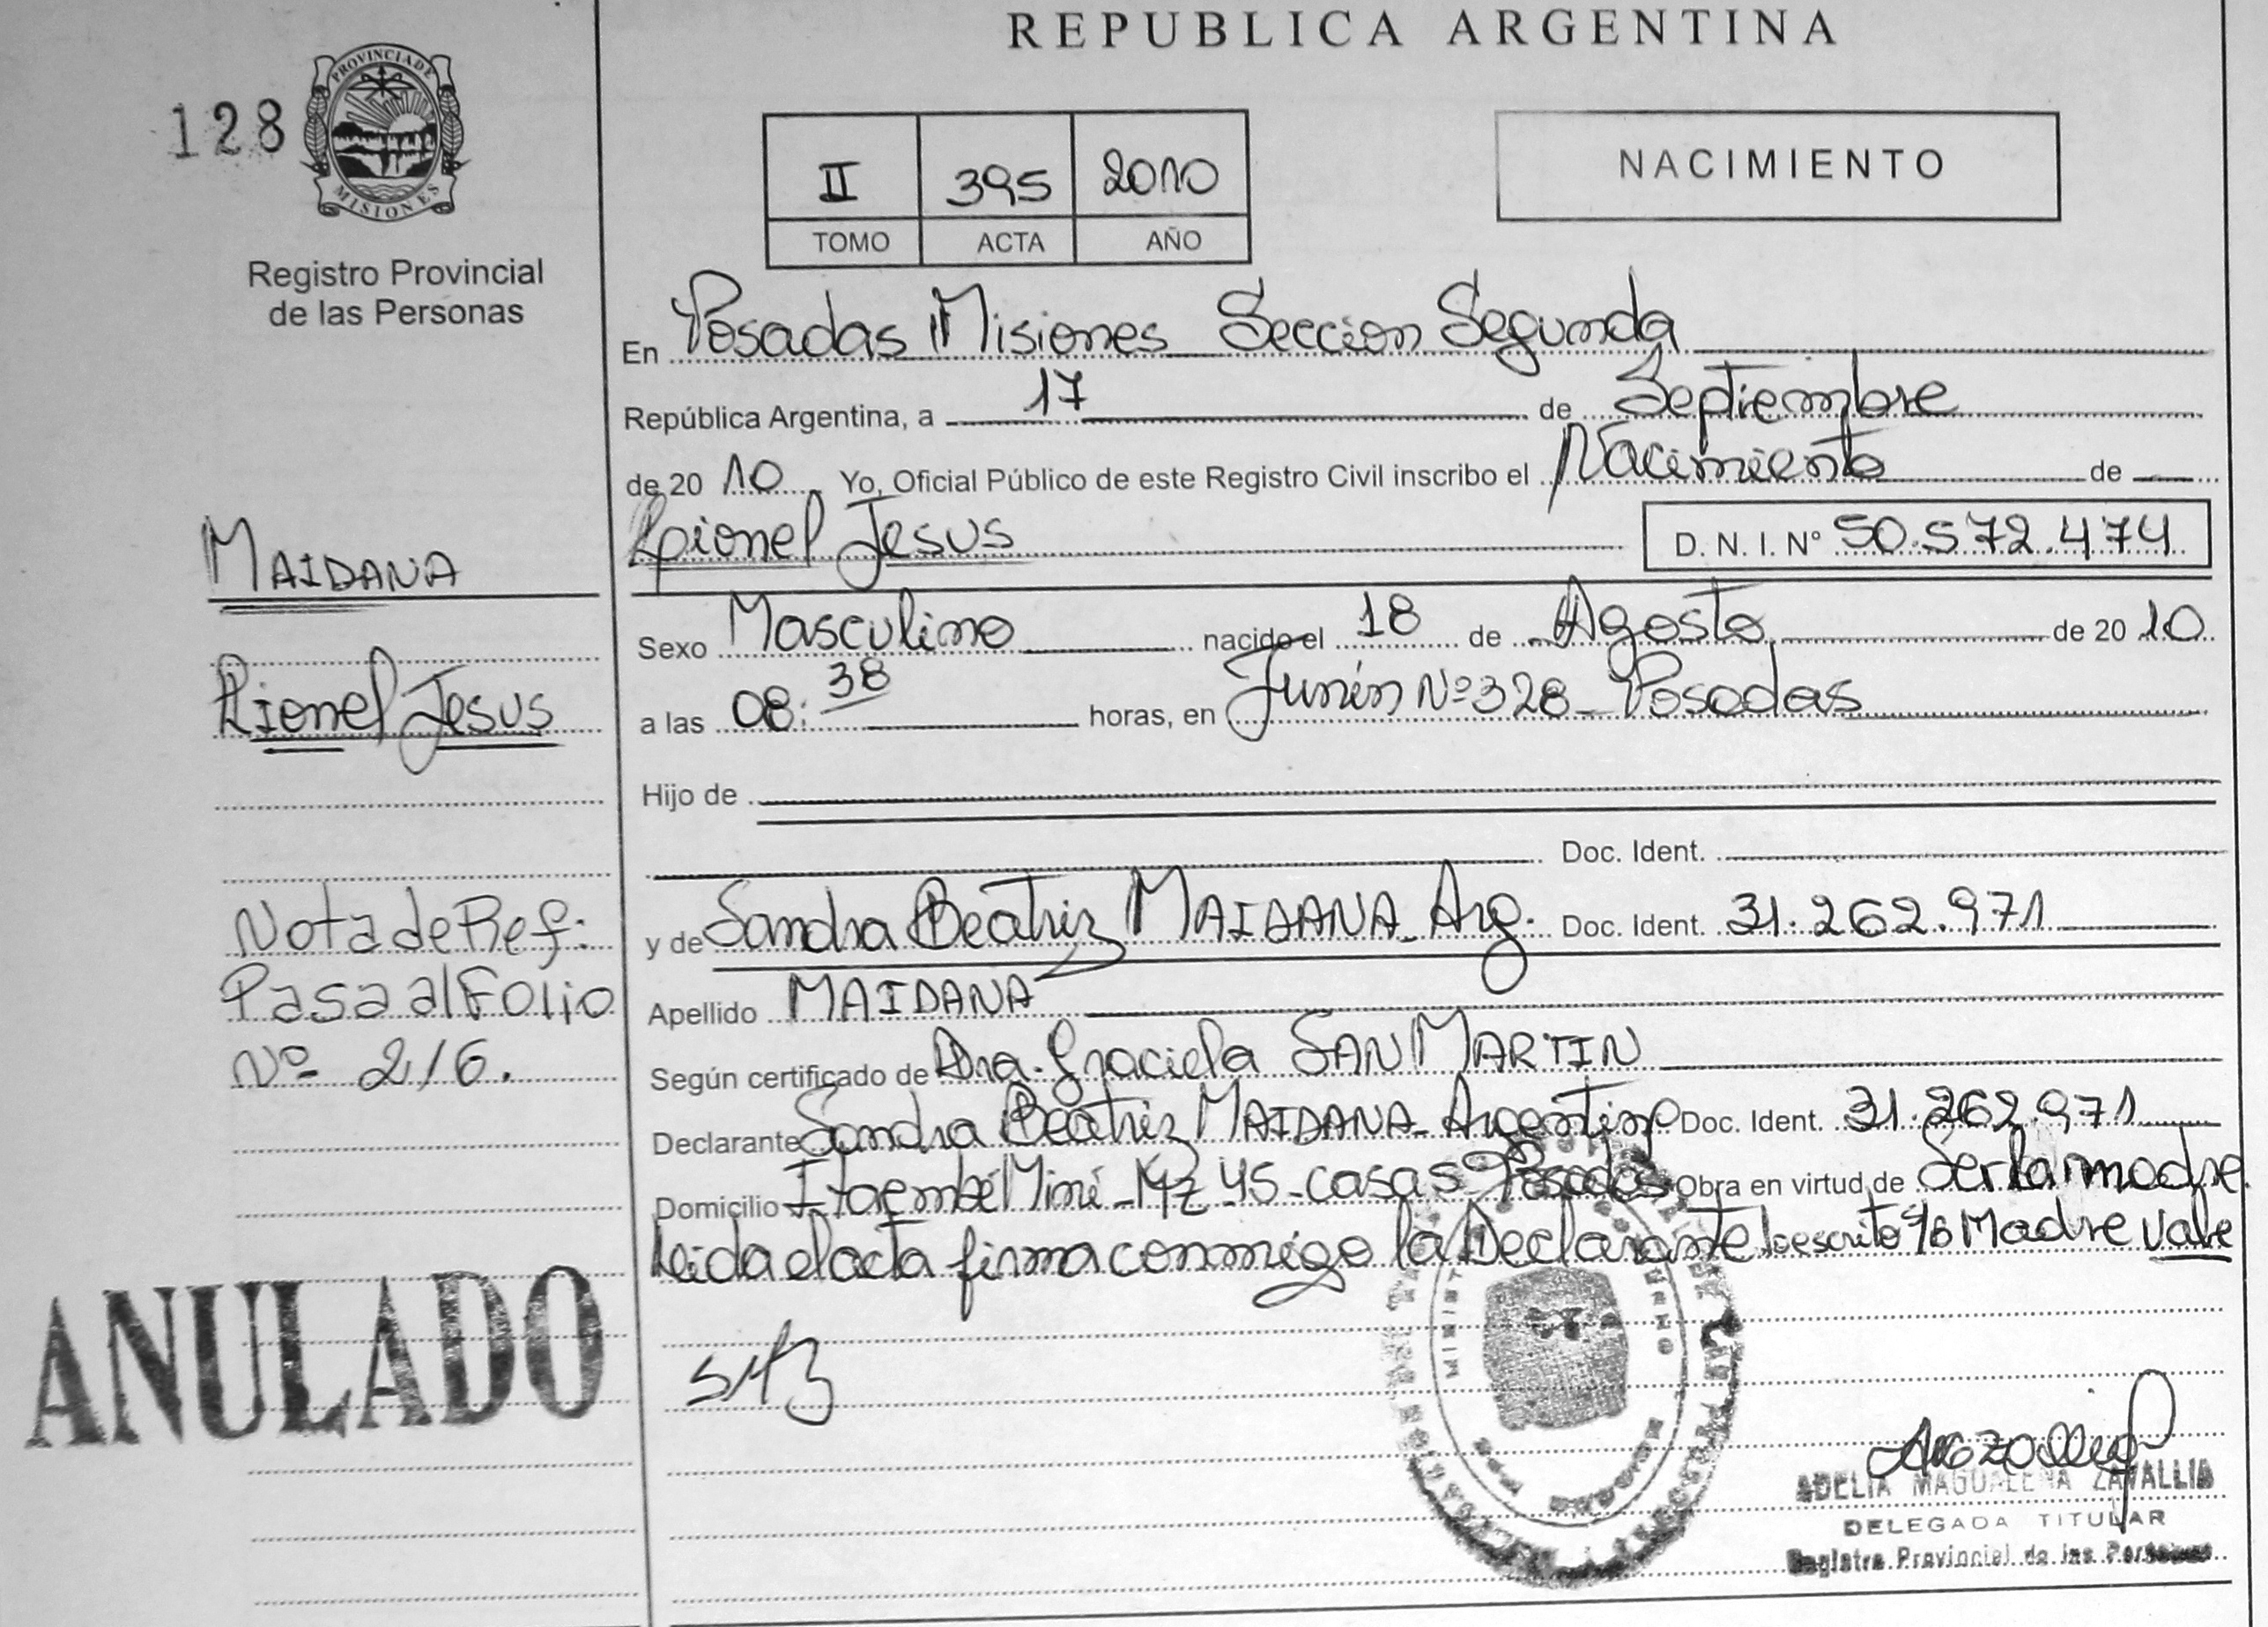 REPUBLICA ARGENTINA
128
PROVINCIA DE
MISIONES
Registro Provincial
de las Personas
II 395 2010
TOMO ACTA AÑO
NACIMIENTO
En Posadas Misiones Seccion Segunda
República Argentina, a 17 de Septiembre
de 20 10 Yo, Oficial Público de este Registro Civil inscribo el Nacimiento de
Lionel Jesus D. N. I. Nº 50.572.474
MAIDANA
Lionel Jesus
Sexo Masculino nacido el 18 de Agosto de 20 10
a las 08:38 horas, en Junín Nº 328 - Posadas
Hijo de
Doc. Ident.
y de Sandra Beatriz MAIDANA - Arg. Doc. Ident. 31.262.971
Apellido MAIDANA
Según certificado de Dra. Graciela SAN MARTIN
Declarante Sandra Beatriz MAIDANA - Argentina Doc. Ident. 31.262.971
Domicilio Itaembé Miní - Mz 45 - casa 5 Posadas Obra en virtud de Ser la madre
Leida el acta firma conmigo la Declarante lo escrito s/b Madre Vale
Nota de Ref:
Pasa al Folio
Nº 216.
ANULADO
ADELIA MAGDALENA ZAVALLIA
DELEGADA TITULAR
Registro Provincial de las Personas